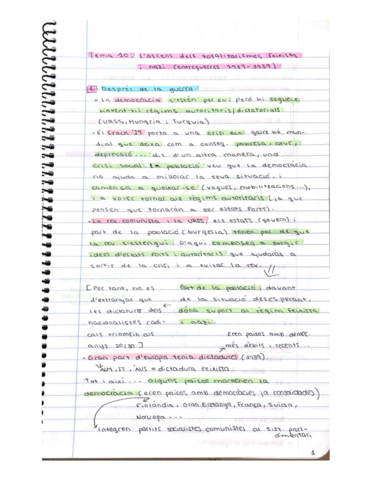 Tema 10: L'ascens dels totalitarismes feixista
i nazi (entreguerres 1919-1939)
1. Després de la guerra
· La democràcia s'estén per eu i però hi segueix
havent-hi règims autoritaris/dictatorials
(URSS, Hungria i Turquia)
· El Crack '29 porta a una crisi eco. gairebé mun-
dial que deixa com a conseq. pobresa, atur,
depressió... dit d'un altra manera, una
crisi social. La població veu que la democràcia
no ajuda a millorar la seva situació i
comença a queixar-se (vagues, mobilitzacions...),
i a voler tornar als règims autoritaris (ja que
pensen que tornaran a ser estats forts).
· La rev. comunista i la URSS, els estats (govern) i
part de la població (burgesia) tenen por de que
la rev. s'estengui. D'aquí comencen a sorgir
idees d'estats forts i autoritaris que ajudaràs a
sortir de la crisi i a evitar la rev.
[Per tant, no és
d'estranyar que
les dictadures dels
nacionalistes radi-
cals triomfin als
anys 20i30]
Part de la població, davant
de la situació desesperant,
dóna suport al règim feixista
i nazi.
eren països amb democ.
més dèbils i recents...
· Gran part d'europa tenia dictadures (1939).
ALM, IT, AUS = dictadura feixista
Tot i així... alguns països mantenen la
democràcia (eren països amb democràcies ja consolidades)
Finlàndia, Gran Bretanya, França, Suïssa,
Noruega...
Integren partits socialistes comunistes al sist. parl-
amentari
1